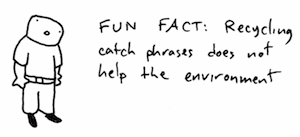 FUN FACT: Recycling
catch phrases does not
help the environment